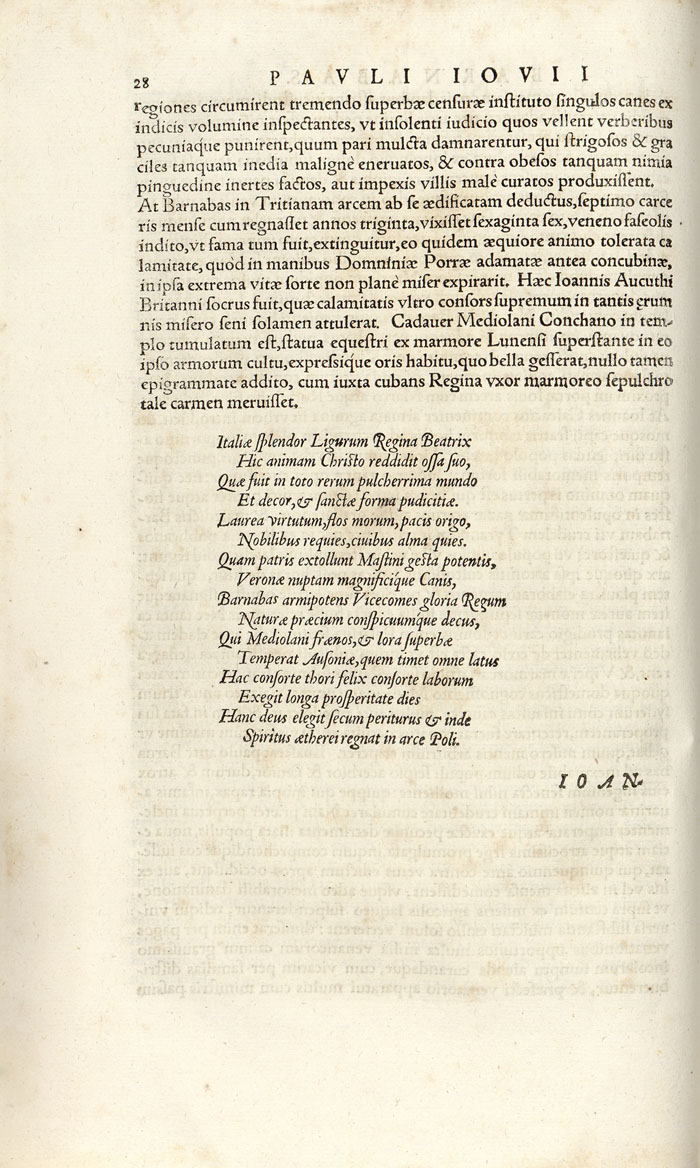 28 PAVLI IOVII
regiones circumirent tremendo superbæ censuræ instituto singulos canes ex
indicis volumine inspectantes, vt insolenti iudicio quos vellent verberibus
pecuniaque punirent,quum pari mulcta damnarentur, qui strigosos & gra
ciles tanquam inedia malignè eneruatos, & contra obesos tanquam nimia
pinguedine inertes factos, aut impexis villis malè curatos produxissent.
At Barnabas in Tritianam arcem ab se ædificatam deductus,septimo carce
ris mense cum regnasset annos triginta,vixisset sexaginta sex,veneno faseolis
indito,vt fama tum fuit,extinguitur,eo quidem æquiore animo tolerata ca
lamitate, quòd in manibus Domniniæ Porræ adamatæ antea concubinæ,
in ipsa extrema vitæ sorte non planè miser expirarit. Hæc Ioannis Aucuthi
Britanni socrus fuit,quæ calamitatis vltro consors supremum in tantis ęrum
nis misero seni solamen attulerat. Cadauer Mediolani Conchano in tem-
plo tumulatum est,statua equestri ex marmore Lunensi superstante in eo
ipso armorum cultu,expressique oris habitu,quo bella gesserat,nullo tamen
epigrammate addito, cum iuxta cubans Regina vxor marmoreo sepulchro
tale carmen meruisset.
Italiæ splendor Ligurum Regina Beatrix
Hic animam Christo reddidit ossa suo,
Quæ fuit in toto rerum pulcherrima mundo
Et decor,& sanctæ forma pudicitiæ.
Laurea virtutum,flos morum,pacis origo,
Nobilibus requies,ciuibus alma quies.
Quam patris extollunt Mastini gesta potentis,
Veronæ nuptam magnificíque Canis,
Barnabas armipotens Vicecomes gloria Regum
Naturæ præcium conspicuumque decus,
Qui Mediolani frænos,& lora superbæ
Temperat Ausoniæ,quem timet omne latus
Hac consorte thori felix consorte laborum
Exegit longa prosperitate dies
Hanc deus elegit secum periturus & inde
Spiritus ætherei regnat in arce Poli.
IOAN-